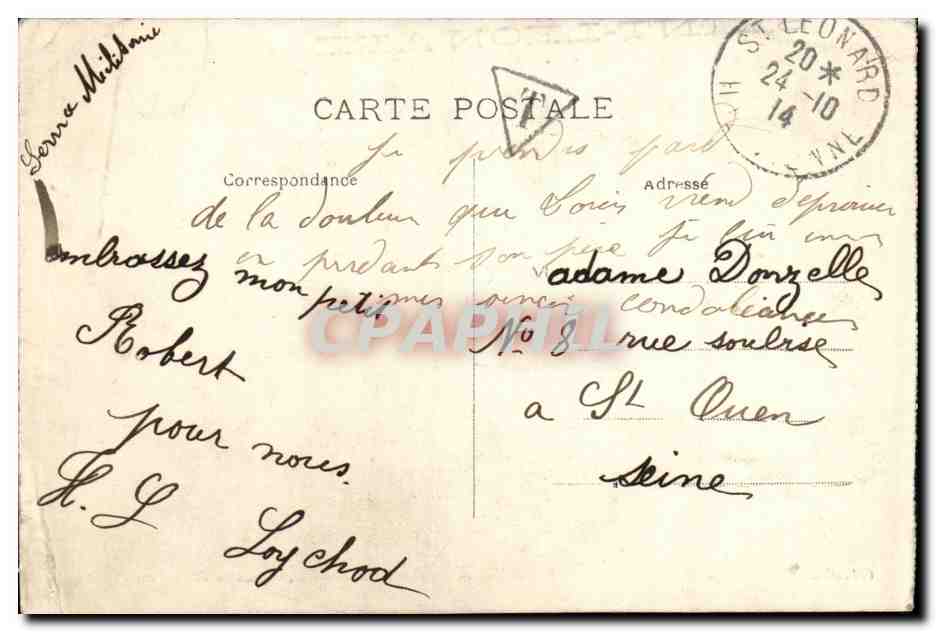 Service Militaire
CARTE POSTALE
T
ST LEONARD
20 *
24 -10
14
H VIENNE
je prends part
Correspondance
Adresse
de la douleur que Loris vient d'éprouver
en perdant son père je lui envoi
mes sincères condoléances
embrassez mon petit
Robert
pour nous.
H. L
Loychod
adame Donzelle
No 8 rue soubise
a St Ouen
seine
CPAPHIL